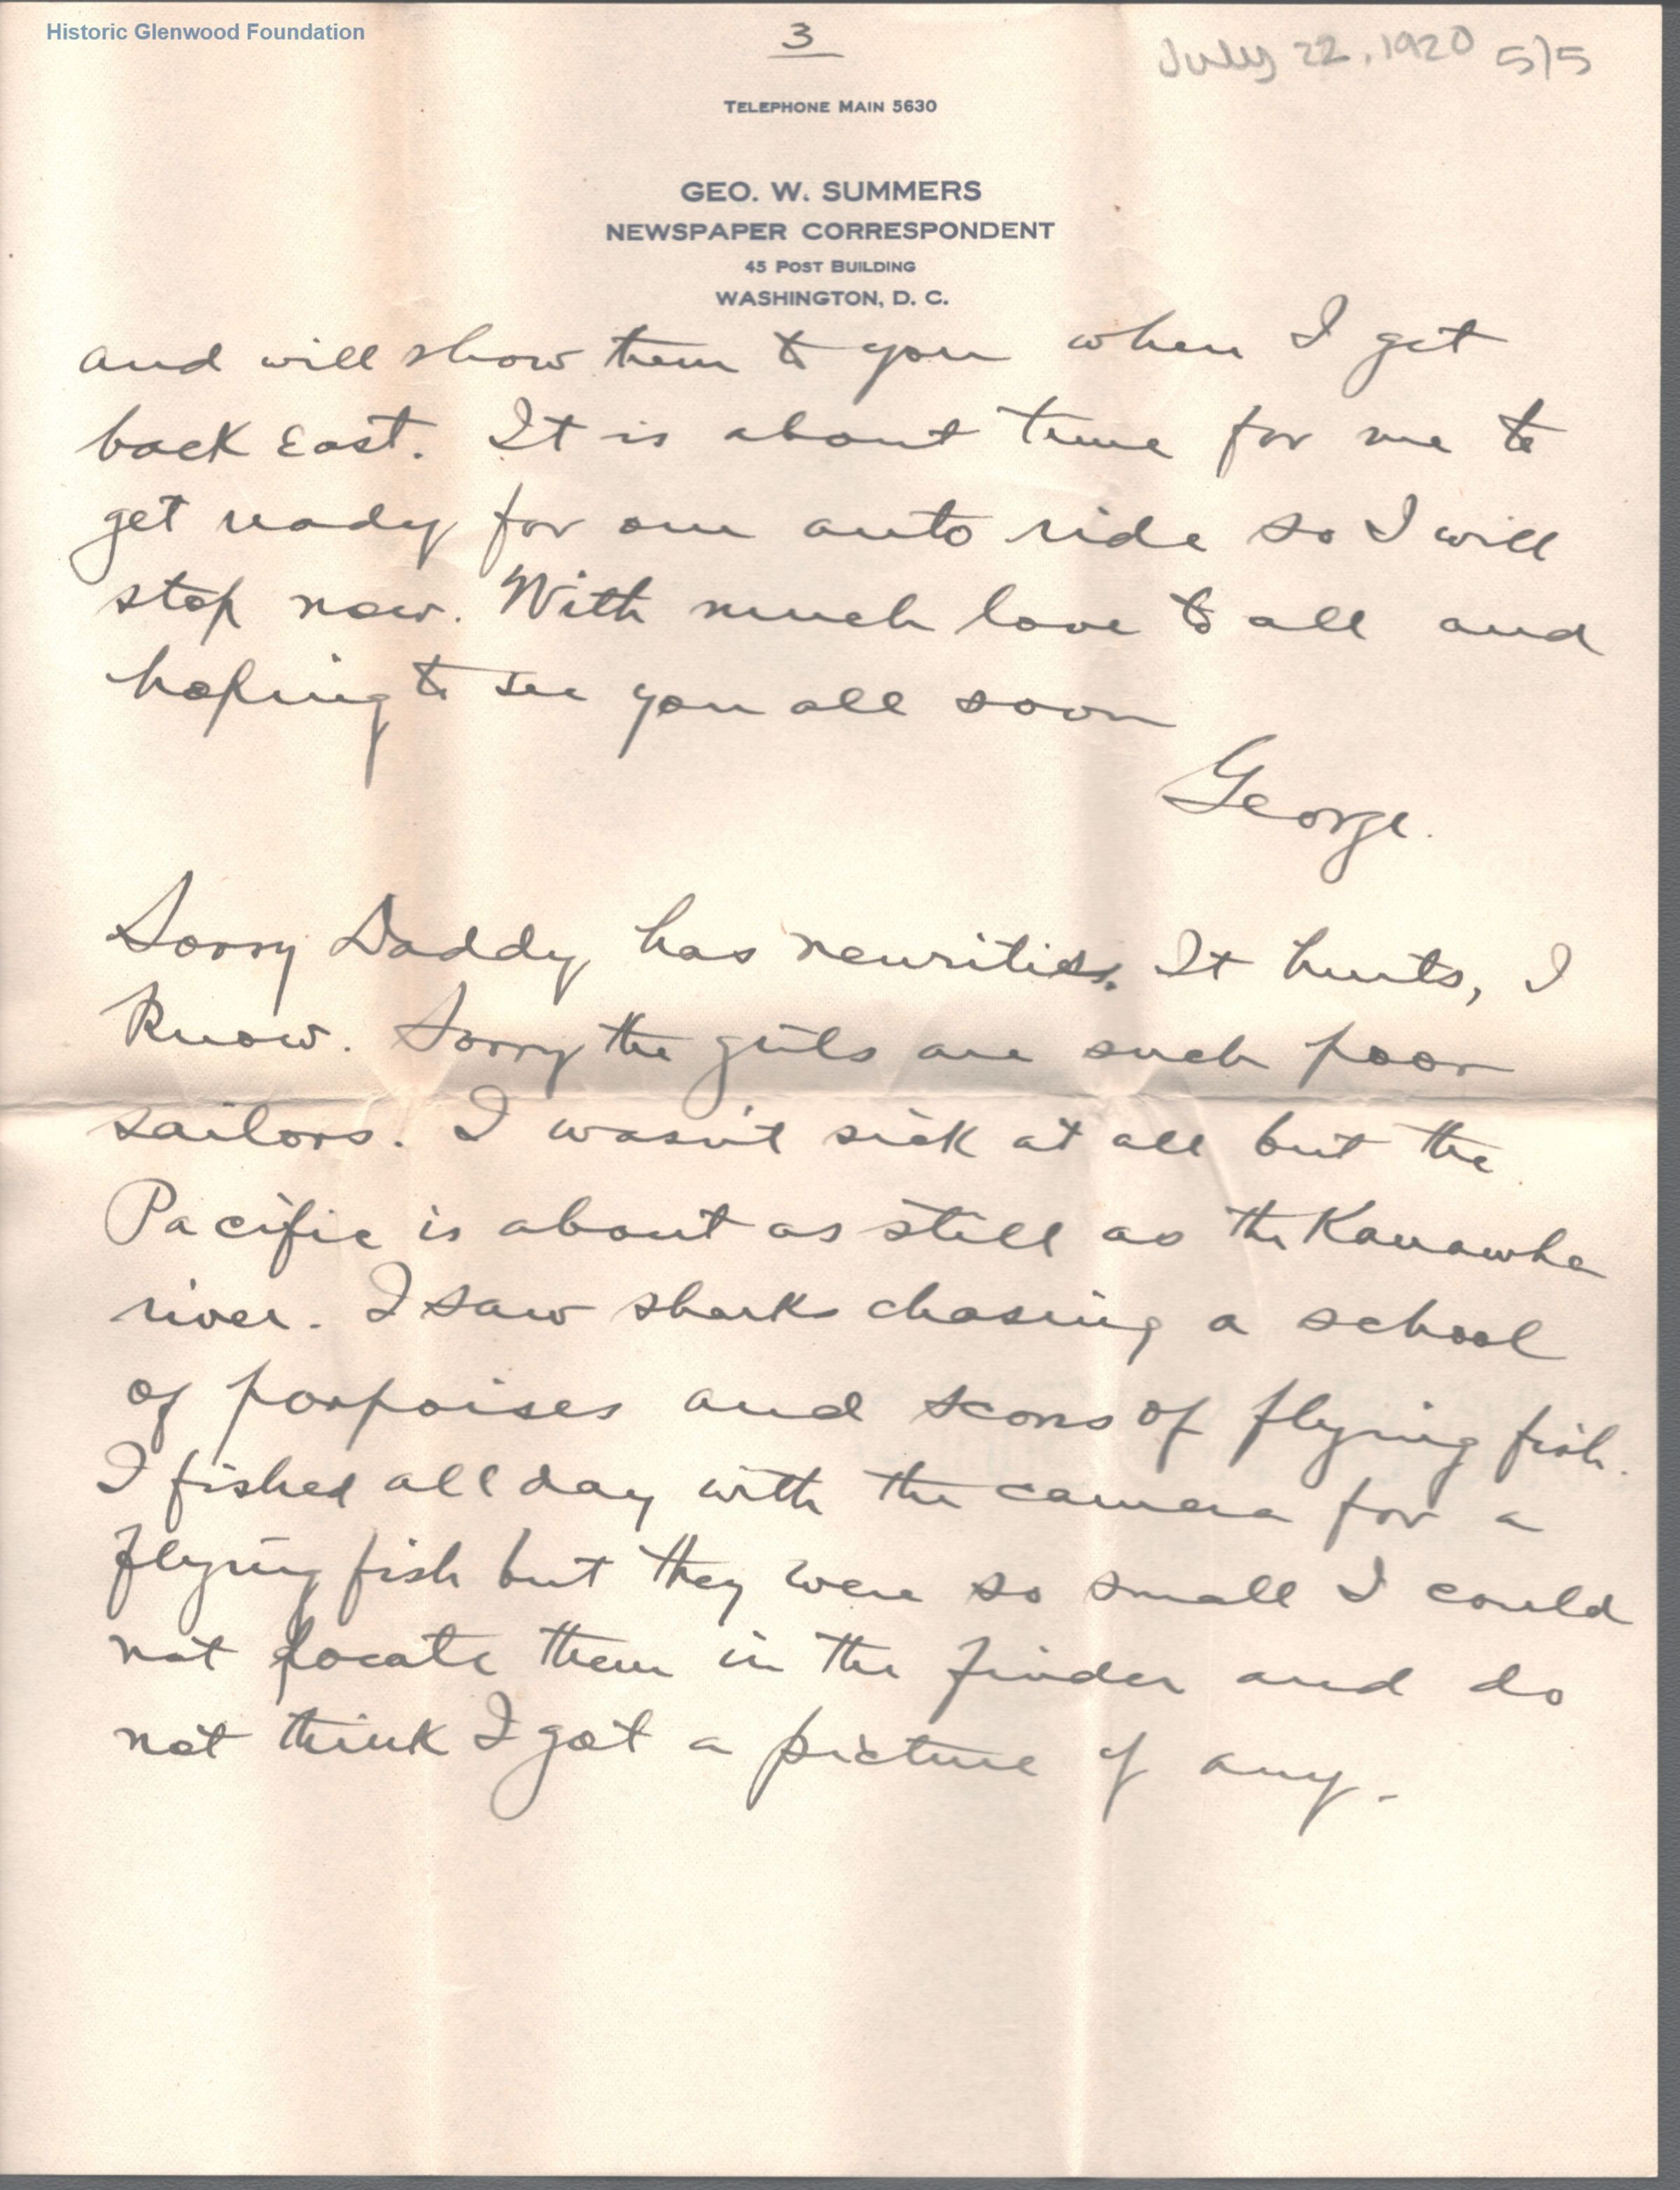 Historic Glenwood Foundation
3
July 22, 1920 5/5
TELEPHONE MAIN 5630
GEO. W. SUMMERS
NEWSPAPER CORRESPONDENT
45 POST BUILDING
WASHINGTON, D. C.
and will show them to you when I get
back East. It is about time for me to
get ready for our auto ride so I will
stop now. With much love to all and
hoping to see you all soon
George.
Sorry Daddy has neuritis. It hurts, I
know. Sorry the girls are such poor
sailors. I wasn't sick at all but the
Pacific is about as still as the Kanawha
river. I saw sharks chasing a school
of porpoises and scores of flying fish.
I fished all day with the camera for a
flying fish but they were so small I could
not locate them in the finder and do
not think I got a picture of any.